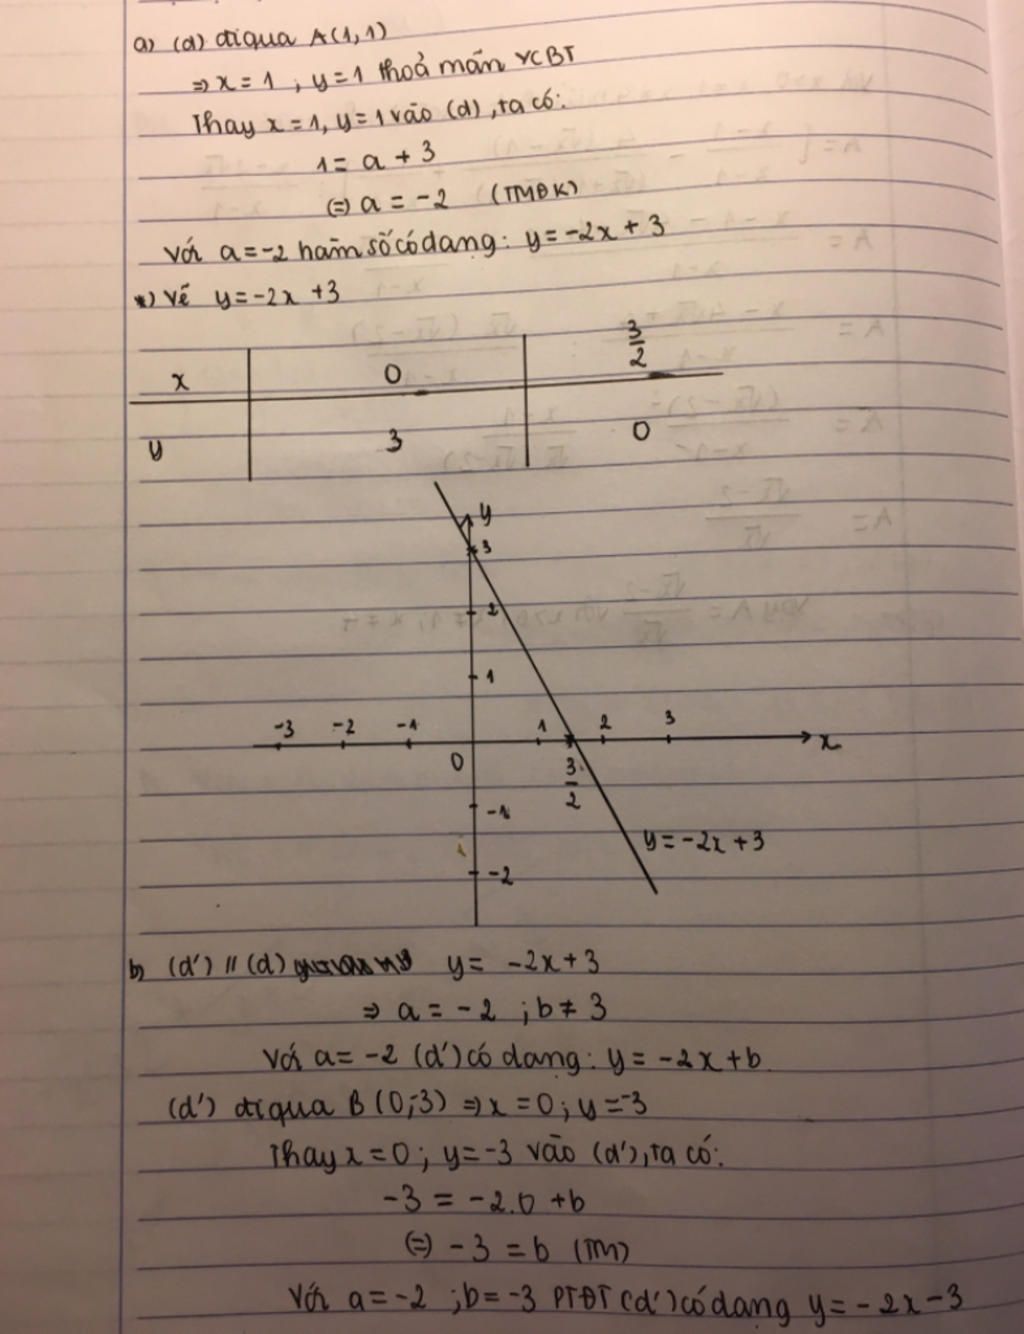 a) (d) đi qua A(1,1)
⇒ x = 1 ; y = 1 thoả mãn YCBT
Thay x = 1, y = 1 vào (d), ta có:
1 = a + 3
(=) a = -2 (TMĐK)
Với a = -2 hàm số có dạng: y = -2x + 3
*) Vẽ y = -2x + 3
x 0 3/2
y 3 0
y
3
2
1
-3 -2 -1 1 2 3
x
0
3/2
-1
-2
y = -2x + 3
b) (d') // (d) y = -2x + 3
⇒ a = -2 ; b ≠ 3
Với a = -2 (d') có dạng: y = -2x + b
(d') đi qua B (0;-3) ⇒ x = 0 ; y = -3
Thay x = 0 ; y = -3 vào (d'), ta có:
-3 = -2.0 + b
(=) -3 = b (TM)
Với a = -2 ; b = -3 PTĐT (d') có dạng y = -2x - 3